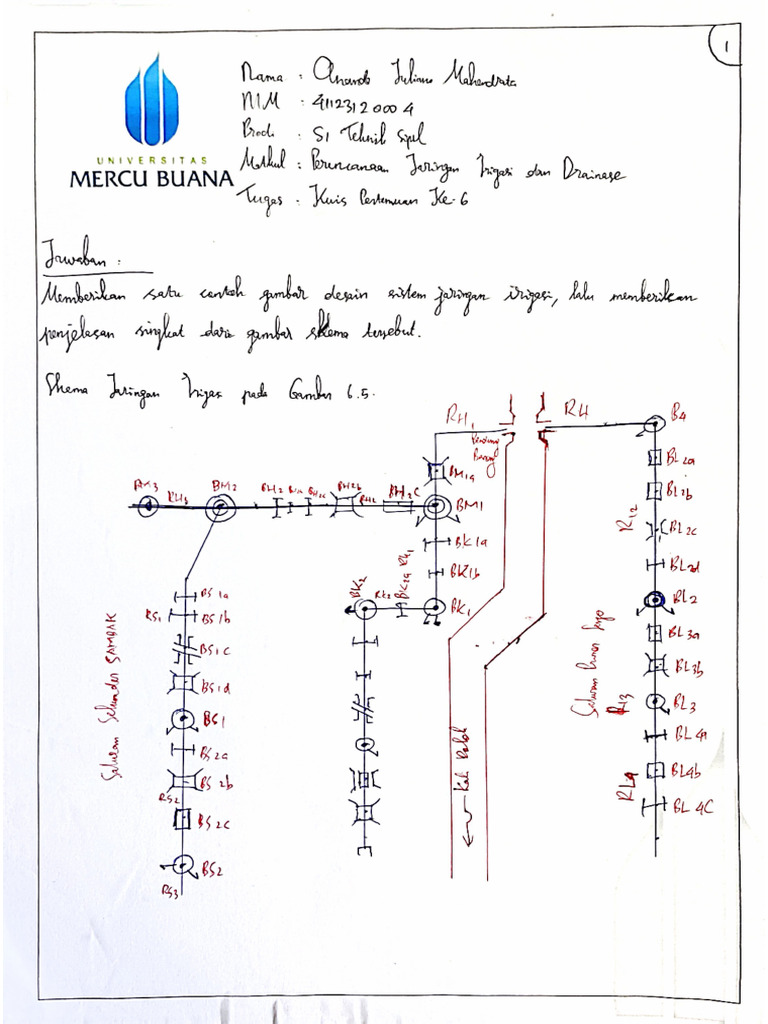 1
UNIVERSITAS
MERCU BUANA
Nama : Juliano Mahendrata
NIM : 41123120004
Prodi : S1 Teknik Sipil
Matkul : Perencanaan Jaringan Irigasi dan Drainase
Tugas : Kuis Pertemuan Ke-6
Jawaban :
Memberikan satu contoh gambar desain sistem jaringan irigasi, lalu memberikan
penjelasan singkat dari gambar skema tersebut.
Skema Jaringan Irigasi pada Gambar 6.5.
RH1
RH
B4
BM1a
BL2a
BL2b
RL2
BL2c
BL2d
BM3
RH3
BM2
BH2
BH2b
RH2
BH2c
BM1
BK1a
RK1
BK1b
BK2
RK2
BK2a
BK1
BL2
BL3a
BL3b
RL3
BL3
BL4a
RL4
BL4b
BL4C
BS1a
RS1
BS1b
BS1c
BS1d
BS1
BS2a
BS2b
RS2
BS2c
BS2
RS3
Saluran Sekunder SAMPAK
Saluran
Kali